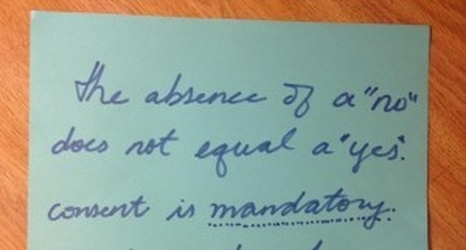 The absence of a "no"
does not equal a "yes".
consent is mandatory.